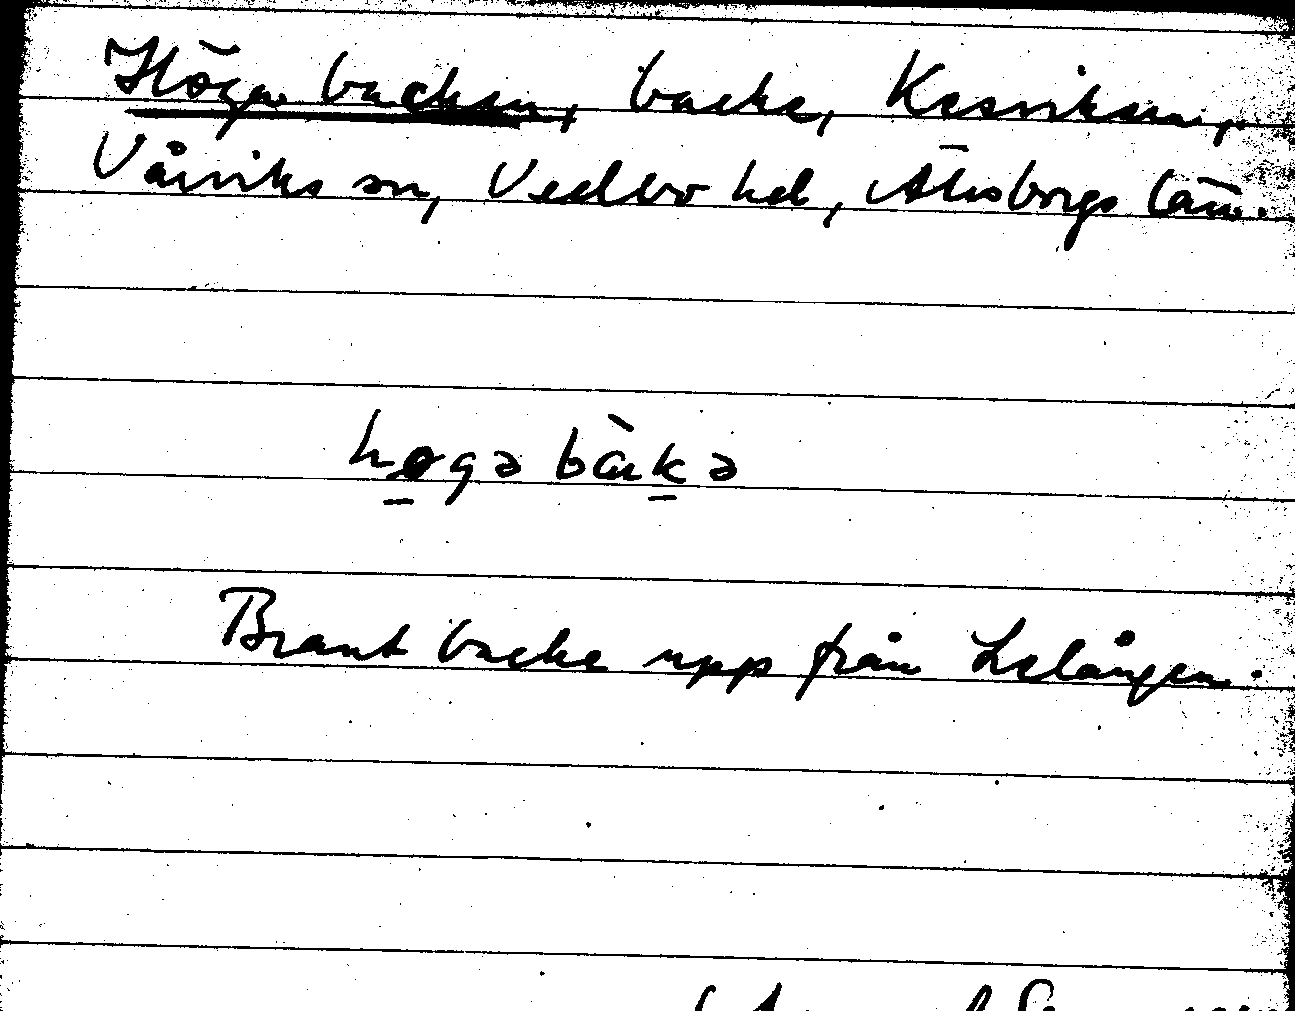 Höga backen, backe, Kesviksn,
Vårviks sn, Vedbo hd, Älvsborgs län.
høgə bàkə
Brant backe upp från Lelången.